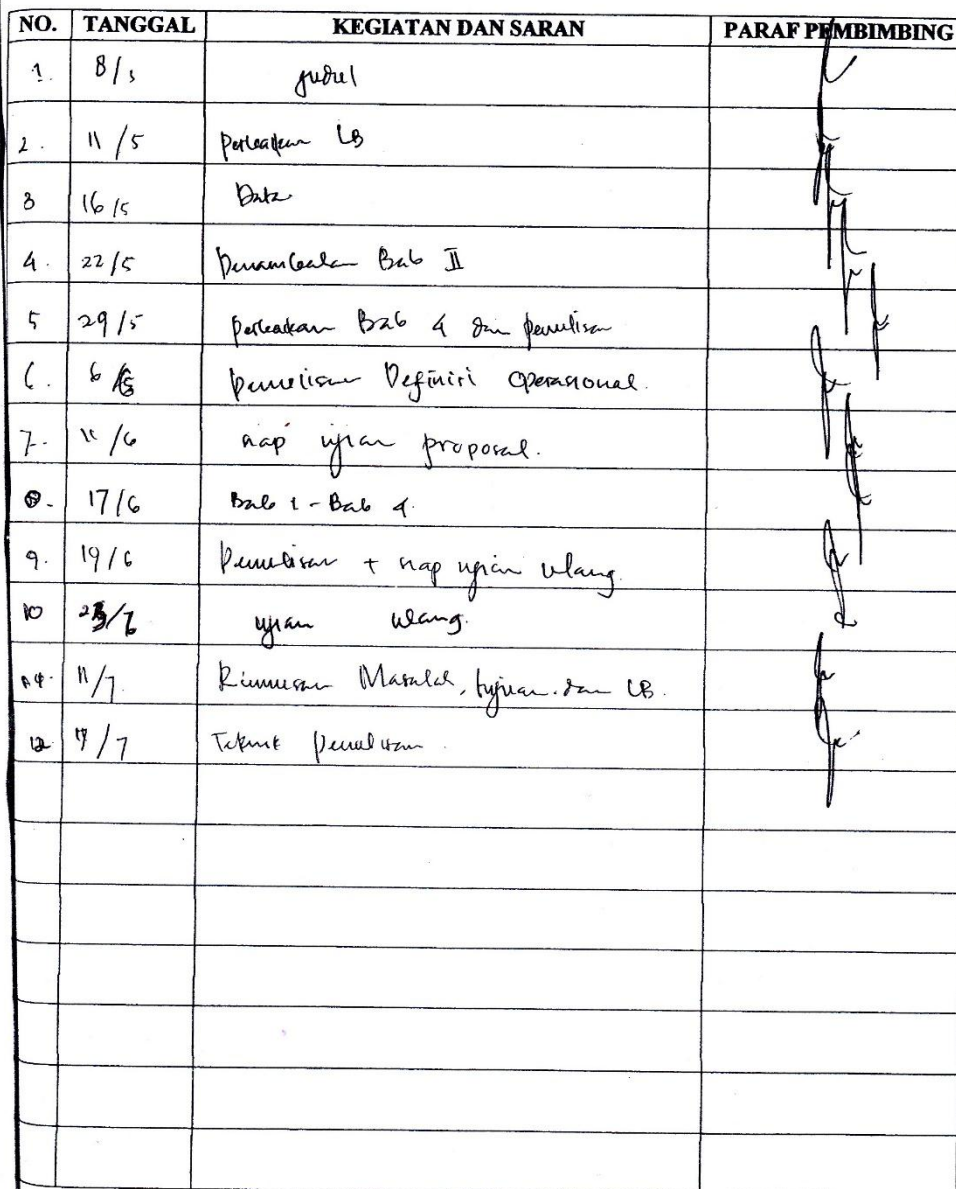 NO. TANGGAL KEGIATAN DAN SARAN PARAF PEMBIMBING
1. 8/5 Judul
2. 11/5 Perbaikan LB
3 16/5 Data
4. 22/5 Penambahan Bab II
5 29/5 perbaikan Bab 4 dan penulisan
6. 6/6 penulisan Definisi Operasional.
7. 11/6 siap ujian proposal.
8. 17/6 Bab 1 - Bab 4
9. 19/6 Penulisan + siap ujian ulang.
10 ujian ulang.
11. 11/7 Rumusan Masalah, tujuan dan LB.
12 17/7 Teknik penulisan